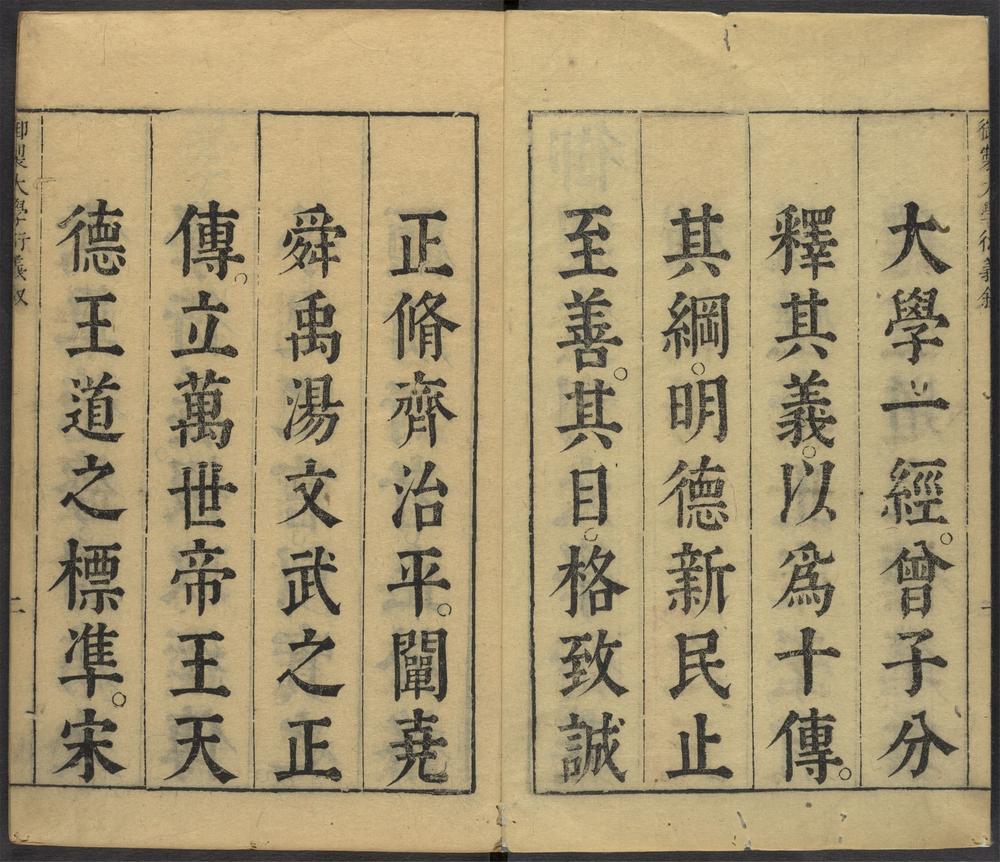 御製大學衍義敘
一
大學一經。曾子分
釋其義。以爲十傳。
其綱。明德新民止
至善。其目。格致誠
正脩齊治平。闡堯
舜禹湯文武之正
傳。立萬世帝王天
德王道之標準。宋
御製大學衍義敘
二